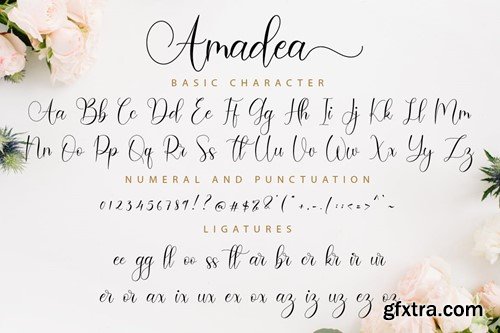 Amadea
BASIC CHARACTER
Aa Bb Cc Dd Ee Ff Gg Hh Ii Jj Kk Ll Mm
Nn Oo Pp Qq Rr Ss tt Uu Vv Ww Xx Yy Zz
NUMERAL AND PUNCTUATION
LIGATURES
ee gg ll oo ss tt ar br er kr ir ur
er or ax ix ux ex ox az iz uz ez oz
gfxtra.com